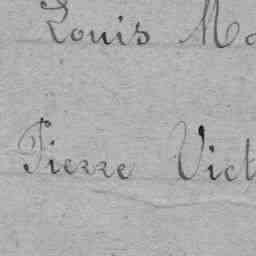 Louis Ma
Pierre Vict